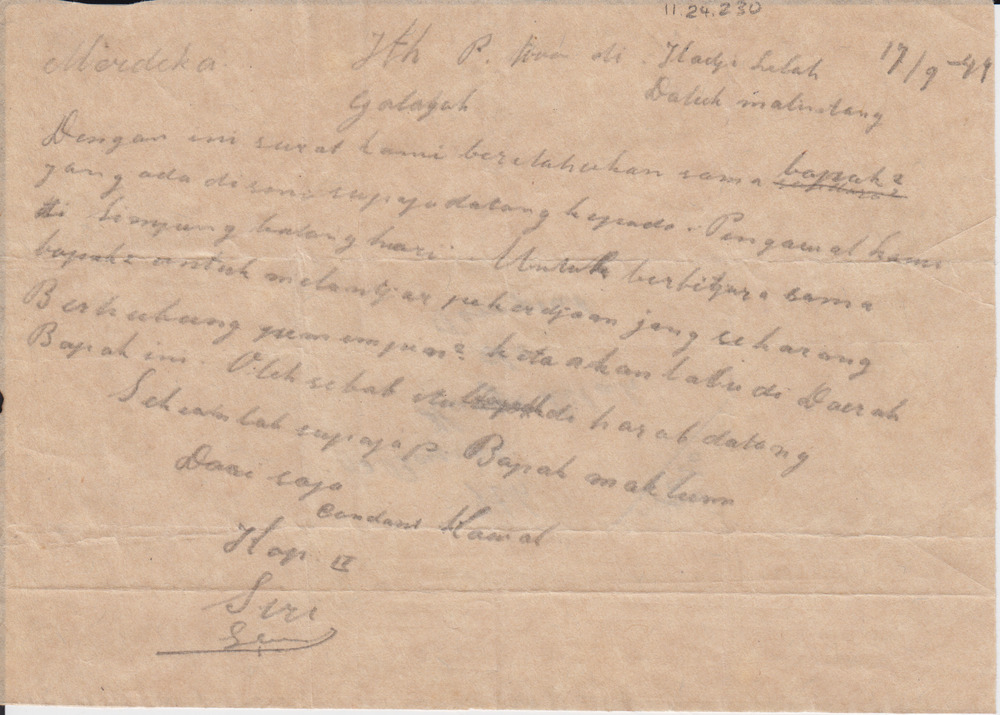 11.24.230
Merdeka. Jth P. di. Hadji Lelah 17/9-49
Galagah Datuk malintang
Dengan ini surat kami beritahukan sama bapak2
yang ada disini supaja datang kepada. Pengawal kami
di Simpang batang hari. Untuk berbitjara sama
bapak2 untuk melantjar pekerdjaan jang sekarang
Berhubung pemimpin2 kita akan lalu di Daerah
Bapak ini. Oleh sebab itu di harab datang
Sekianlah supaja p. Bapak maklum
Dari saja
Condant Kawal
Kop. II
Siri